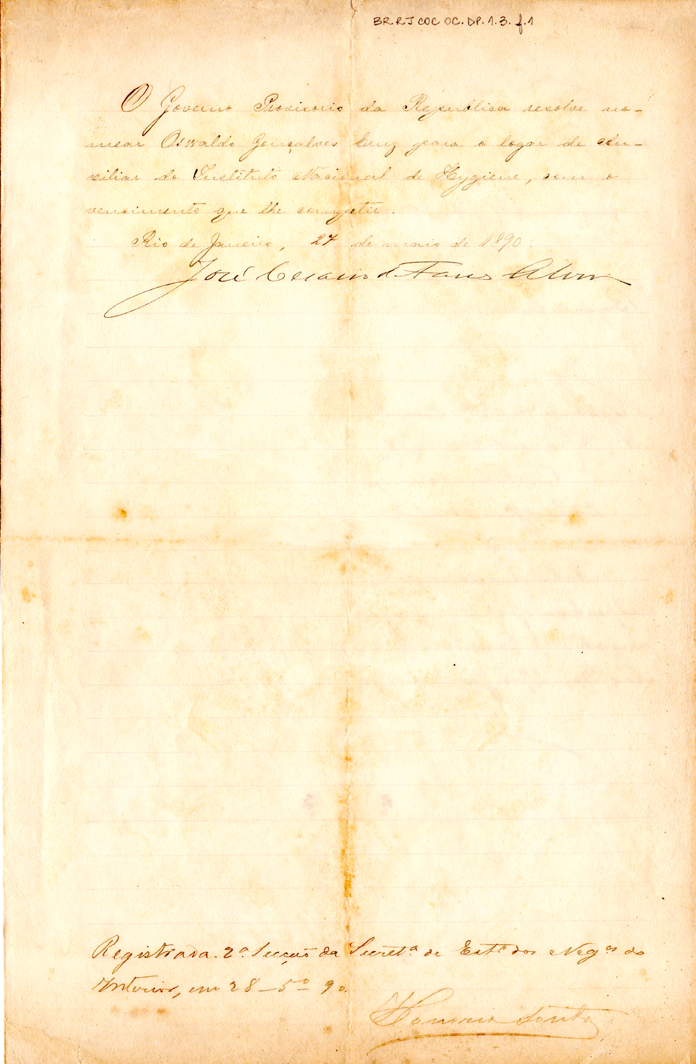 BR RJ COC OC.DP.1.3.f.1
O Governo Provisorio da Republica resolve no-
mear Oswaldo Gonçalves Cruz para o logar de Au-
xiliar do Instituto Nacional de Hygiene, com o
vencimento que lhe competir.
Rio de Janeiro, 27 de maio de 1890.
José Cesario de Faria Alvim
Registrada. 2ª Secção da Secretª de Estº dos Negºs do
Interior, em 28-5º 90